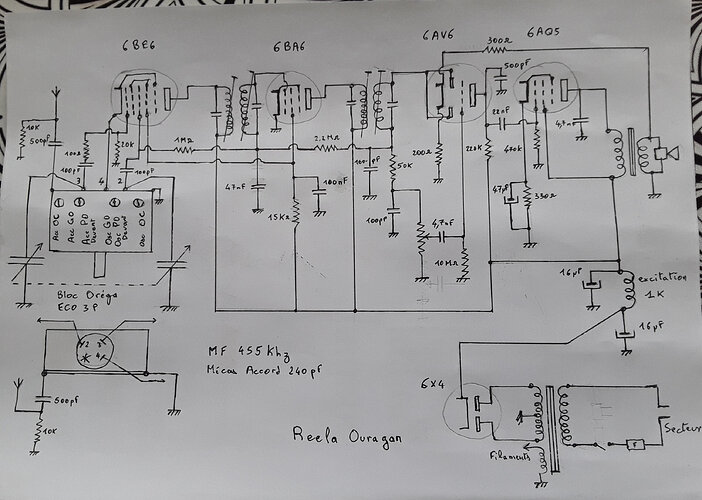 6BE6
6BA6
6AV6
6AQ5
300Ω
10K
500pF
100Ω
100pF
20K
1MΩ
2,2MΩ
47nF
100nF
15KΩ
50K
100pF
200Ω
500pF
22nF
220K
470K
4,7nF
47µF
330Ω
4,7nF
10MΩ
3
4
2
100pF
Acc OC
Acc GO
Acc PO
Devant
Osc GO
Osc PO
Devant
Osc OC
Bloc Oréga
ECO 3P
16µF
excitation
1K
16µF
2
3
4
500pF
10K
MF 455 Khz
Micas Accord 240pF
Reela Ouragan
6X4
Filaments
F
Secteur